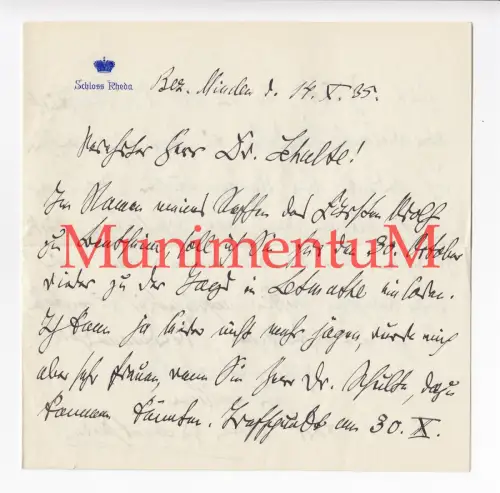 Schloss Rheda
Bez. Minden d. 14. X. 35.
Verehrter Herr Dr. Schulte!
Im Namen meines Neffen des Fürsten Adolf
zu Bentheim soll ich Sie für den 30. Oktober
MunimentuM
wieder zu der Jagd in Letmathe einladen.
Ich kann ja leider nicht mehr jagen, würde mich
aber sehr freuen, wenn Sie Herr Dr. Schulte, dazu
kommen könnten. Treffpunkt am 30. X.